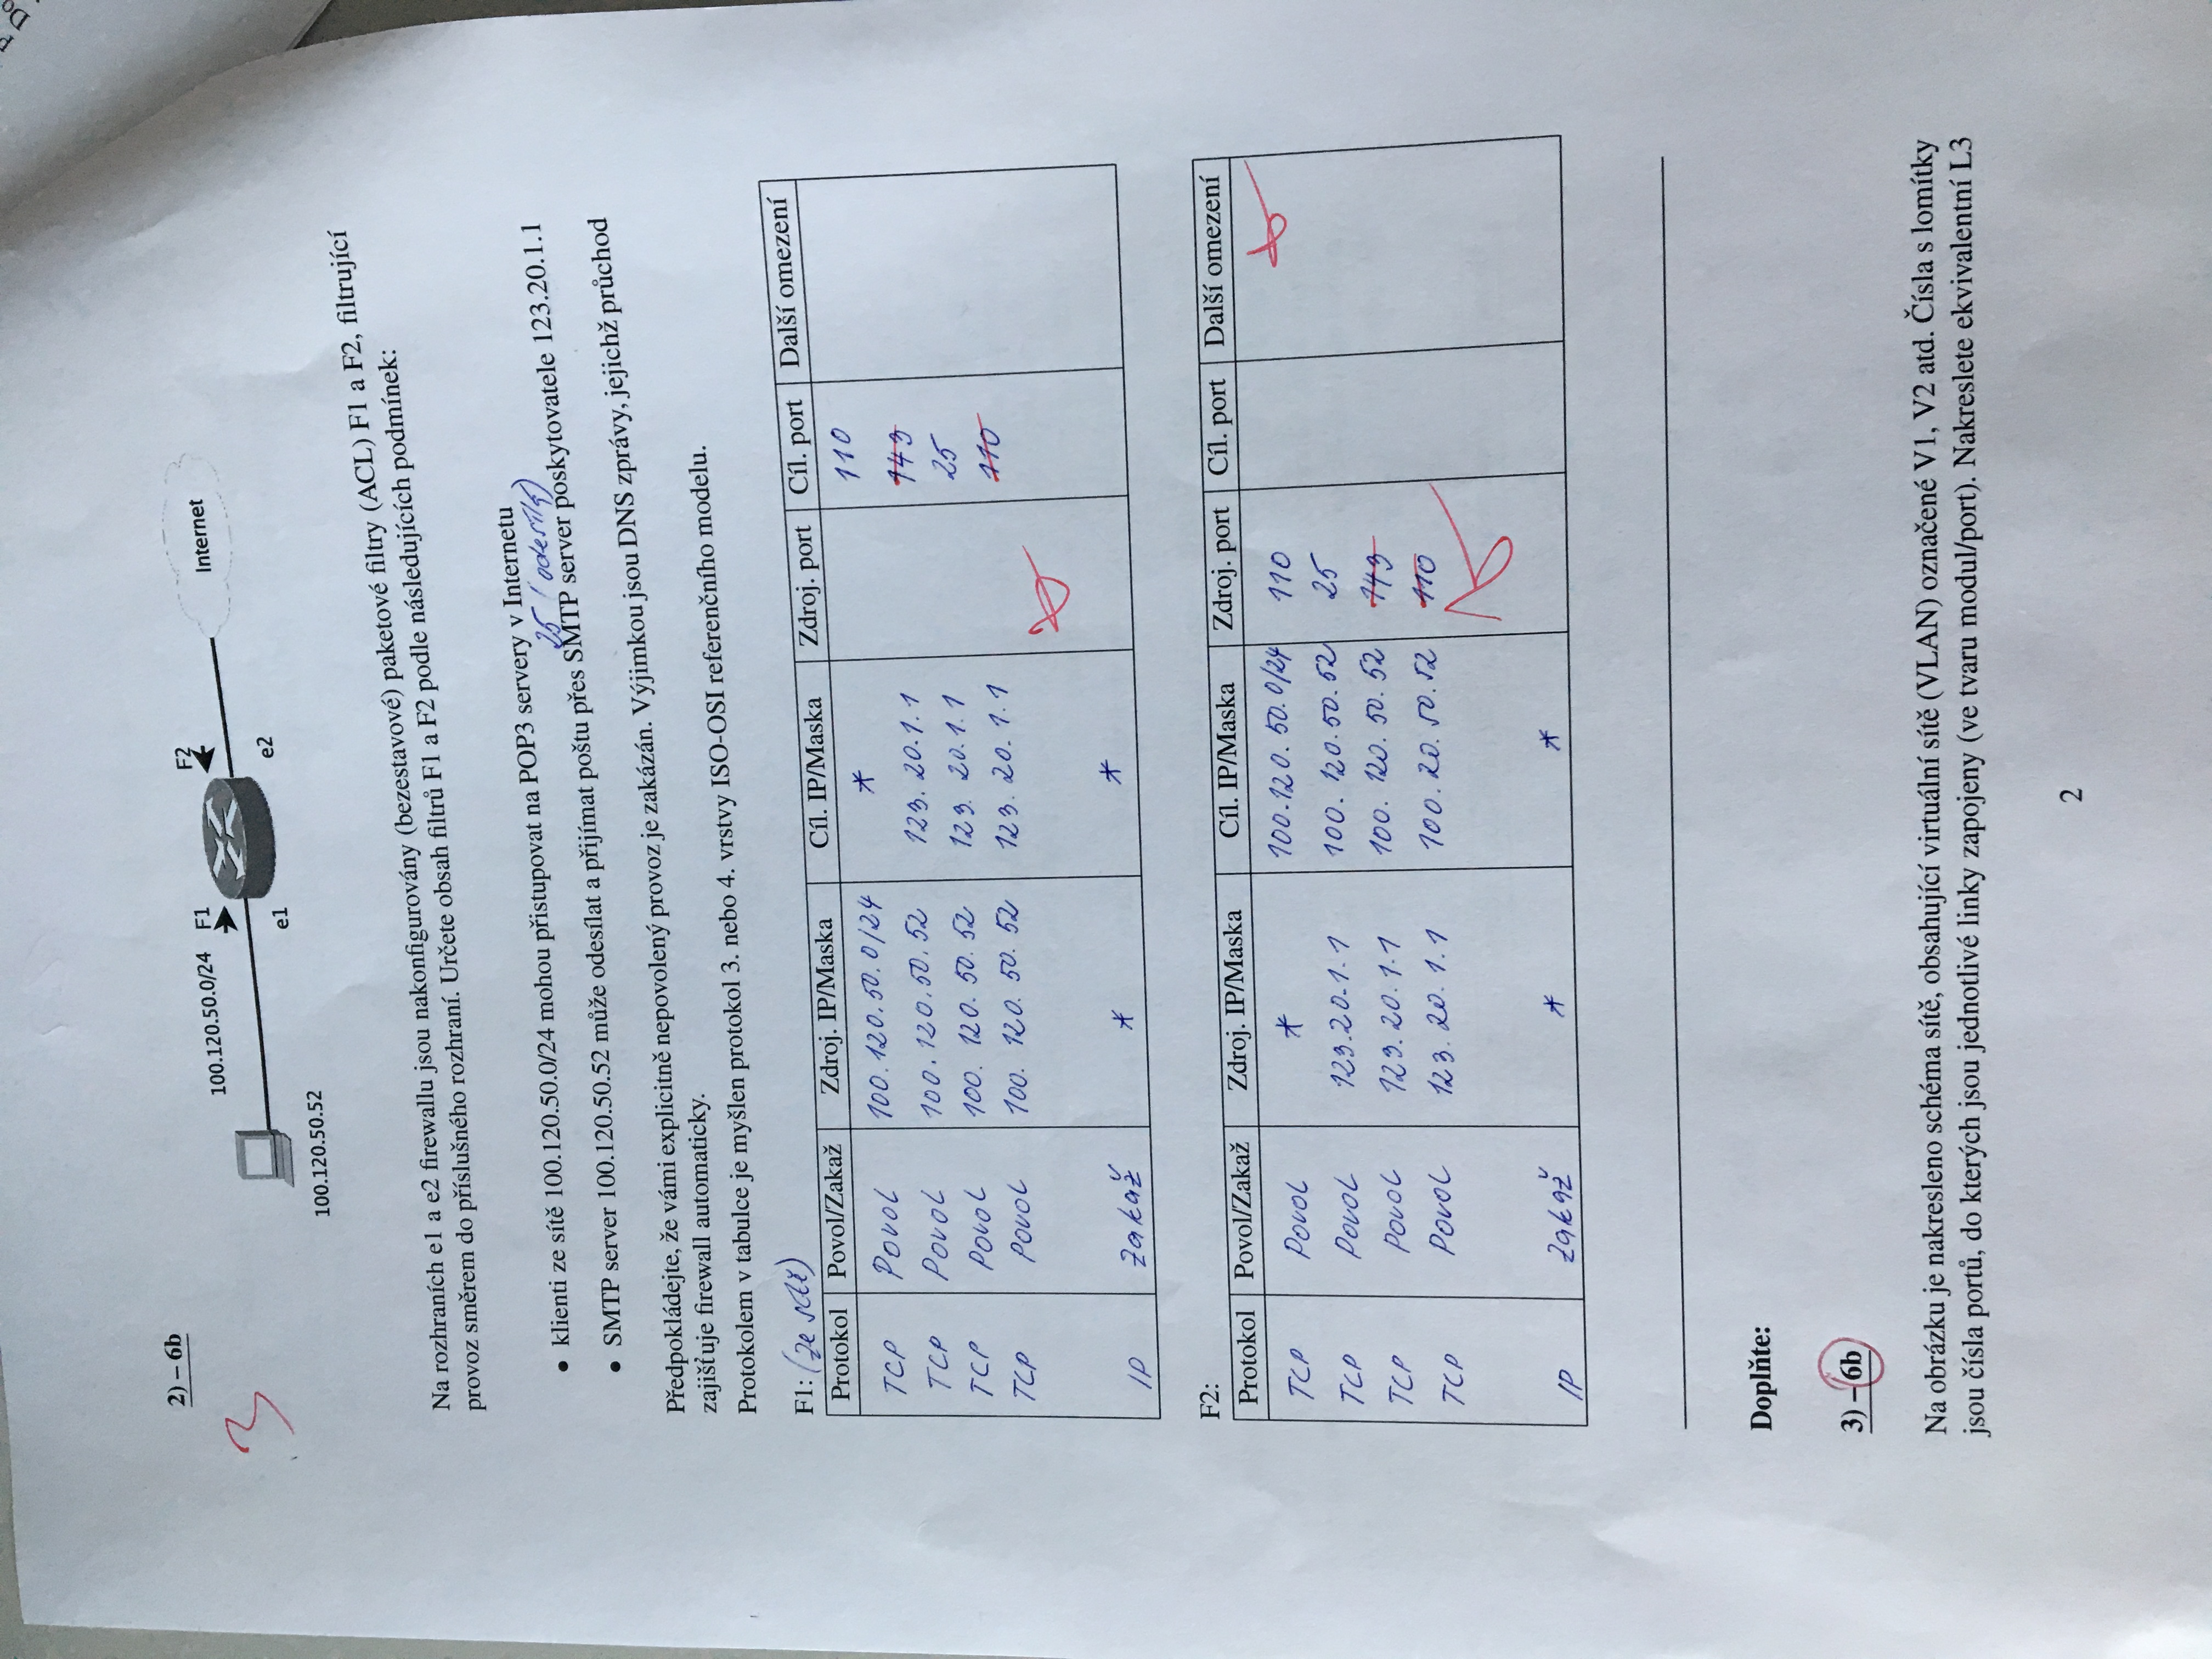 Do
2) – 6b
3
100.120.50.0/24 F1
F2
Internet
e1
e2
100.120.50.52
Na rozhraních e1 a e2 firewallu jsou nakonfigurovány (bezestavové) paketové filtry (ACL) F1 a F2, filtrující
provoz směrem do příslušného rozhraní. Určete obsah filtrů F1 a F2 podle následujících podmínek:
• klienti ze sítě 100.120.50.0/24 mohou přistupovat na POP3 servery v Internetu
25 (odesílá)
• SMTP server 100.120.50.52 může odesílat a přijímat poštu přes SMTP server poskytovatele 123.20.1.1
Předpokládejte, že vámi explicitně nepovolený provoz je zakázán. Výjimkou jsou DNS zprávy, jejichž průchod
zajišťuje firewall automaticky.
Protokolem v tabulce je myšlen protokol 3. nebo 4. vrstvy ISO-OSI referenčního modelu.
F1: (ze sítě)
Protokol Povol/Zakaž Zdroj. IP/Maska Cíl. IP/Maska Zdroj. port Cíl. port Další omezení
TCP Povol 100.120.50.0/24 * 110
TCP Povol 100.120.50.52 123.20.1.1 143
TCP Povol 100.120.50.52 123.20.1.1 25
TCP Povol 100.120.50.52 123.20.1.1 110
IP Zakaž * *
F2:
Protokol Povol/Zakaž Zdroj. IP/Maska Cíl. IP/Maska Zdroj. port Cíl. port Další omezení
TCP Povol * 100.120.50.0/24 110
TCP Povol 123.20.1.1 100.120.50.52 25
TCP Povol 123.20.1.1 100.120.50.52 143
TCP Povol 123.20.1.1 100.20.50.52 110
IP Zakaž * *
Doplňte:
3) – 6b
Na obrázku je nakresleno schéma sítě, obsahující virtuální sítě (VLAN) označené V1, V2 atd. Čísla s lomítky
jsou čísla portů, do kterých jsou jednotlivé linky zapojeny (ve tvaru modul/port). Nakreslete ekvivalentní L3
2